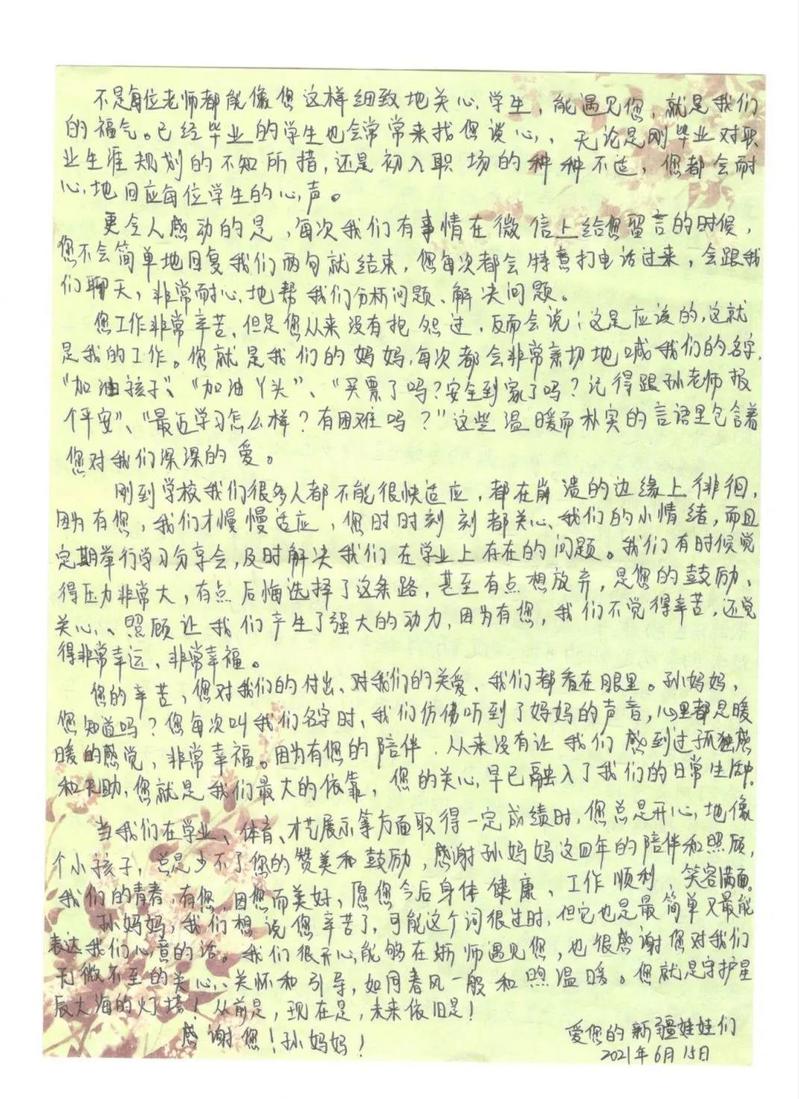 不是每位老师都能像您这样细致地关心学生，能遇见您，就是我们
的福气。已经毕业的学生也会常常来找您谈心，无论是刚毕业对职
业生涯规划的不知所措，还是初入职场的种种不适，您都会耐
心地回应每位学生的心声。
更令人感动的是，每次我们有事情在微信上给您留言的时候，
您不会简单地回复我们两句就结束，您每次都会特意打电话过来，会跟我
们聊天，非常耐心地帮我们分析问题、解决问题。
您工作非常辛苦，但是您从来没有抱怨过，反而会说：这是应该的，这就
是我的工作。您就是我们的妈妈，每次都会非常亲切地喊我们的名字，
“加油孩子”、“加油丫头”、“买票了吗？安全到家了吗？记得跟孙老师报
个平安”、“最近学习怎么样？有困难吗？”这些温暖而朴实的言语里包含着
您对我们深深的爱。
刚到学校我们很多人都不能很快适应，都在崩溃的边缘上徘徊，
因为有您，我们才慢慢适应，您时时刻刻都关心我们的小情绪，而且
定期举行学习分享会，及时解决我们在学业上存在的问题。我们有时候觉
得压力非常大，有点后悔选择了这条路，甚至有点想放弃，是您的鼓励、
关心、照顾让我们产生了强大的动力，因为有您，我们不觉得辛苦，还觉
得非常幸运、非常幸福。
您的辛苦，您对我们的付出、对我们的关爱，我们都看在眼里。孙妈妈，
您知道吗？您每次叫我们名字时，我们仿佛听到了妈妈的声音，心里都是暖
暖的感觉，非常幸福。因为有您的陪伴，从来没有让我们感到过孤独感
和无助，您就是我们最大的依靠，您的关心早已融入了我们的日常生活中。
当我们在学业、体育、才艺展示等方面取得一定成绩时，您总是开心地像
个小孩子，总是少不了您的赞美和鼓励，感谢孙妈妈这四年的陪伴和照顾，
我们的青春，有您，因您而美好，愿您今后身体健康、工作顺利、笑容满面。
孙妈妈，我们想说您辛苦了，可能这个词很过时，但它也是最简单又最能
表达我们心意的话。我们很开心能够在浙师遇见您，也很感谢您对我们
无微不至的关心、关怀和引导，如同春风一般和煦温暖。您就是守护星
辰大海的灯塔！从前是，现在是，未来依旧是！
感谢您！孙妈妈！
爱您的新疆娃娃们
2021年6月15日